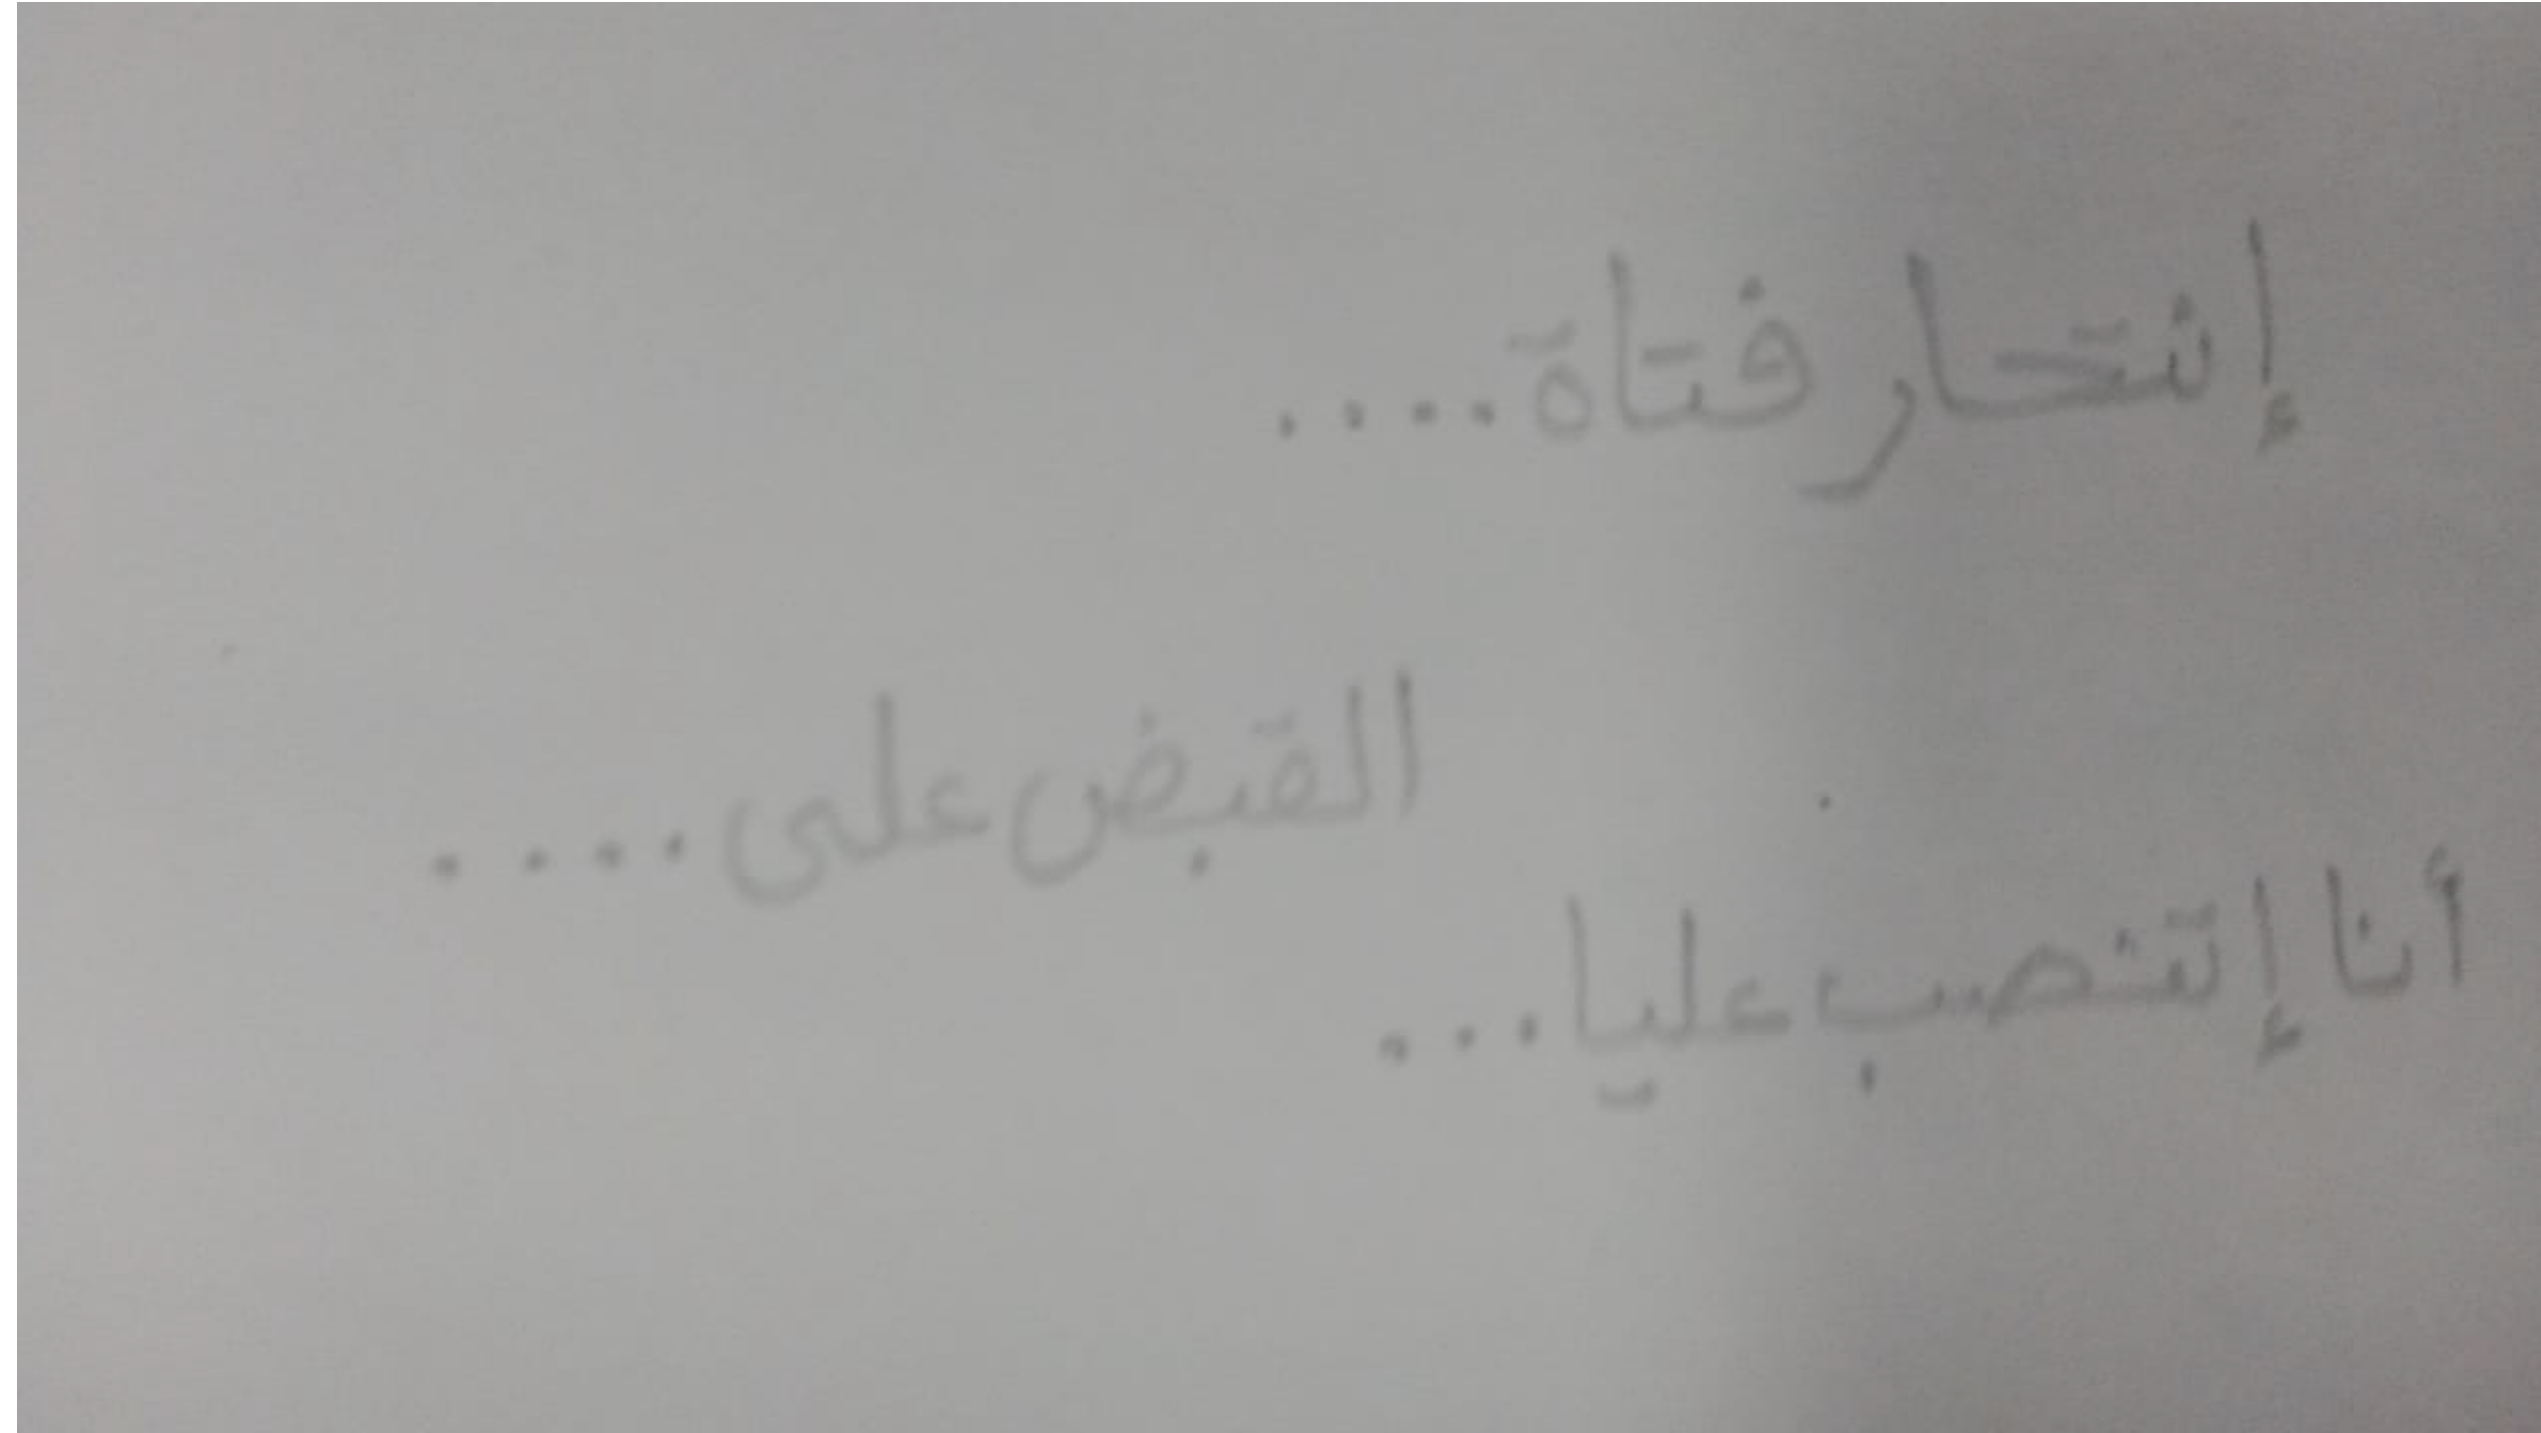 إنتحار فتاة ....
القبض على ....
أنا إتنصب عليا ...